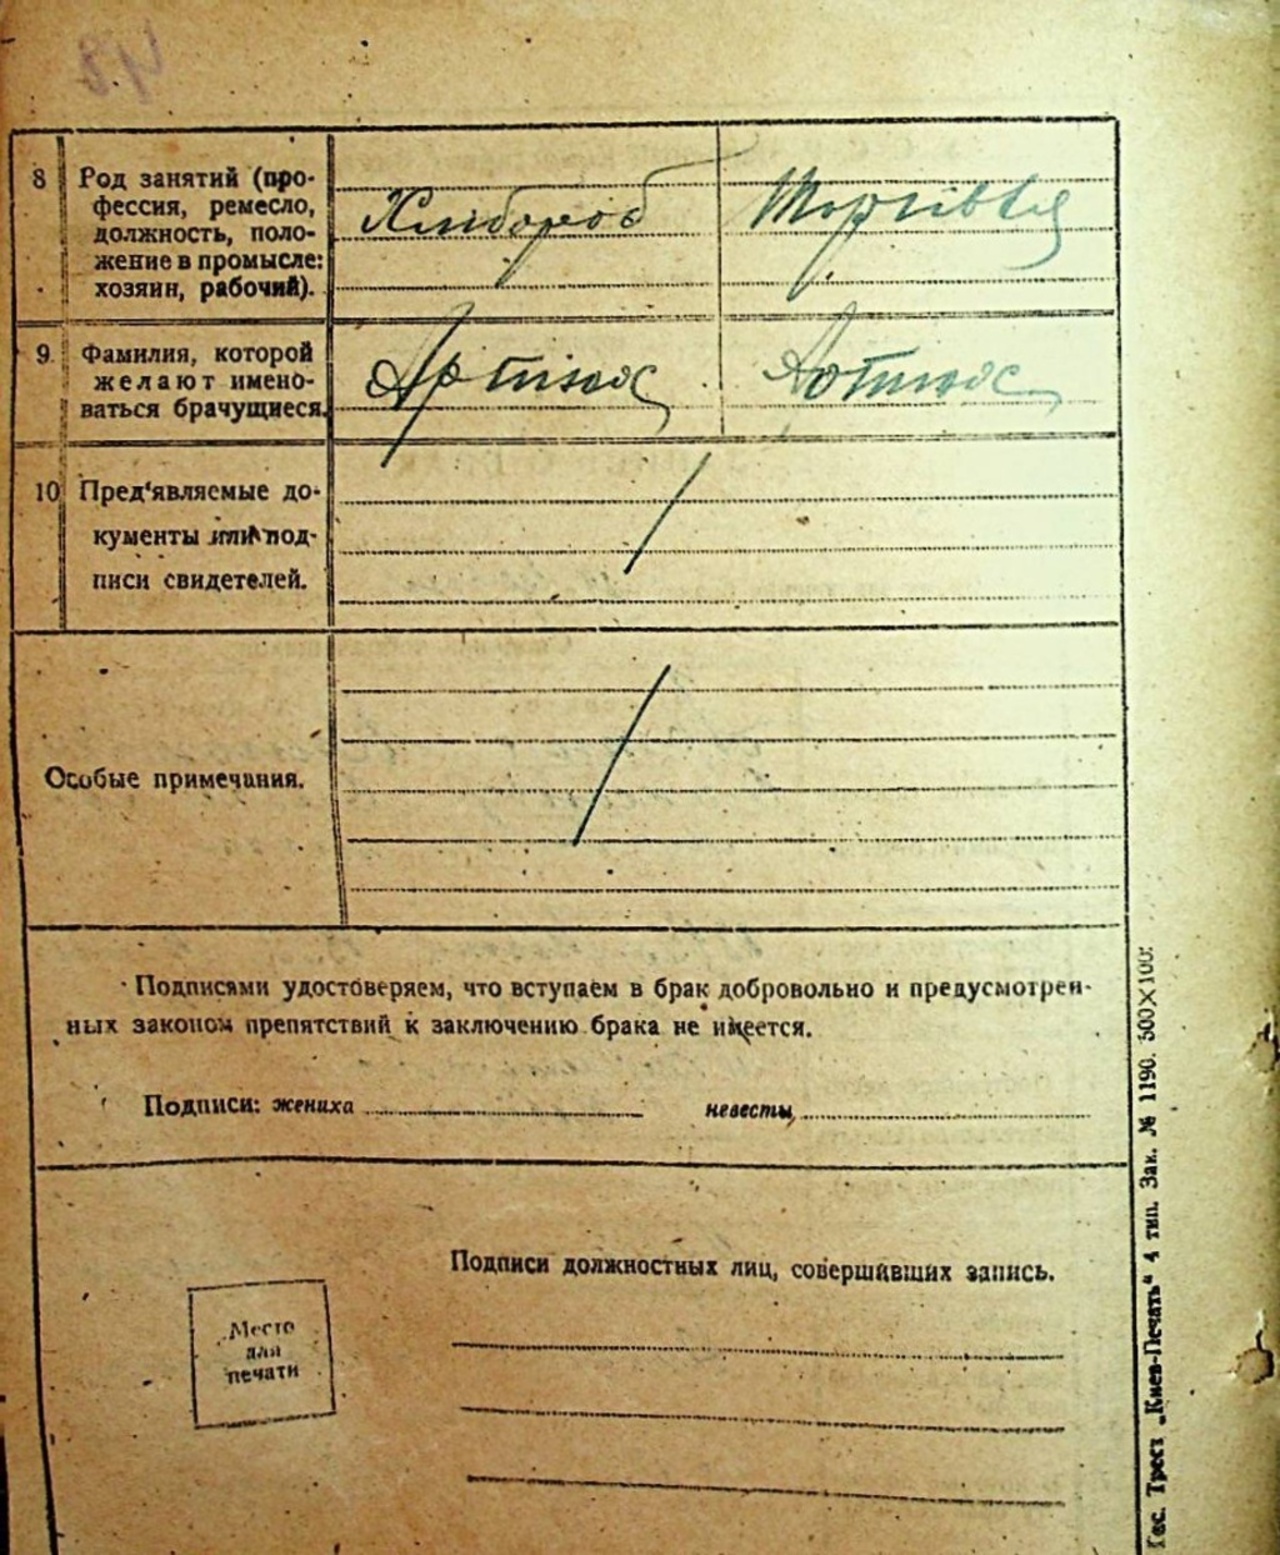 48
8 Род занятий (про-
фессия, ремесло,
должность, поло-
жение в промысле:
хозяин, рабочий).
Хлібороб
9. Фамилия, которой
желают имено-
ваться брачущиеся.
10 Пред'являемые до-
кументы или под-
писи свидетелей.
Особые примечания.
Подписями удостоверяем, что вступаем в брак добровольно и предусмотрен-
ных законом препятствий к заключению брака не имеется.
Подписи: жениха невесты
Подписи должностных лиц, совершивших запись.
Место
для
печати
Гос. Трест „Киев-Печать" 4 тип. Зак. № 1190. 500×100: